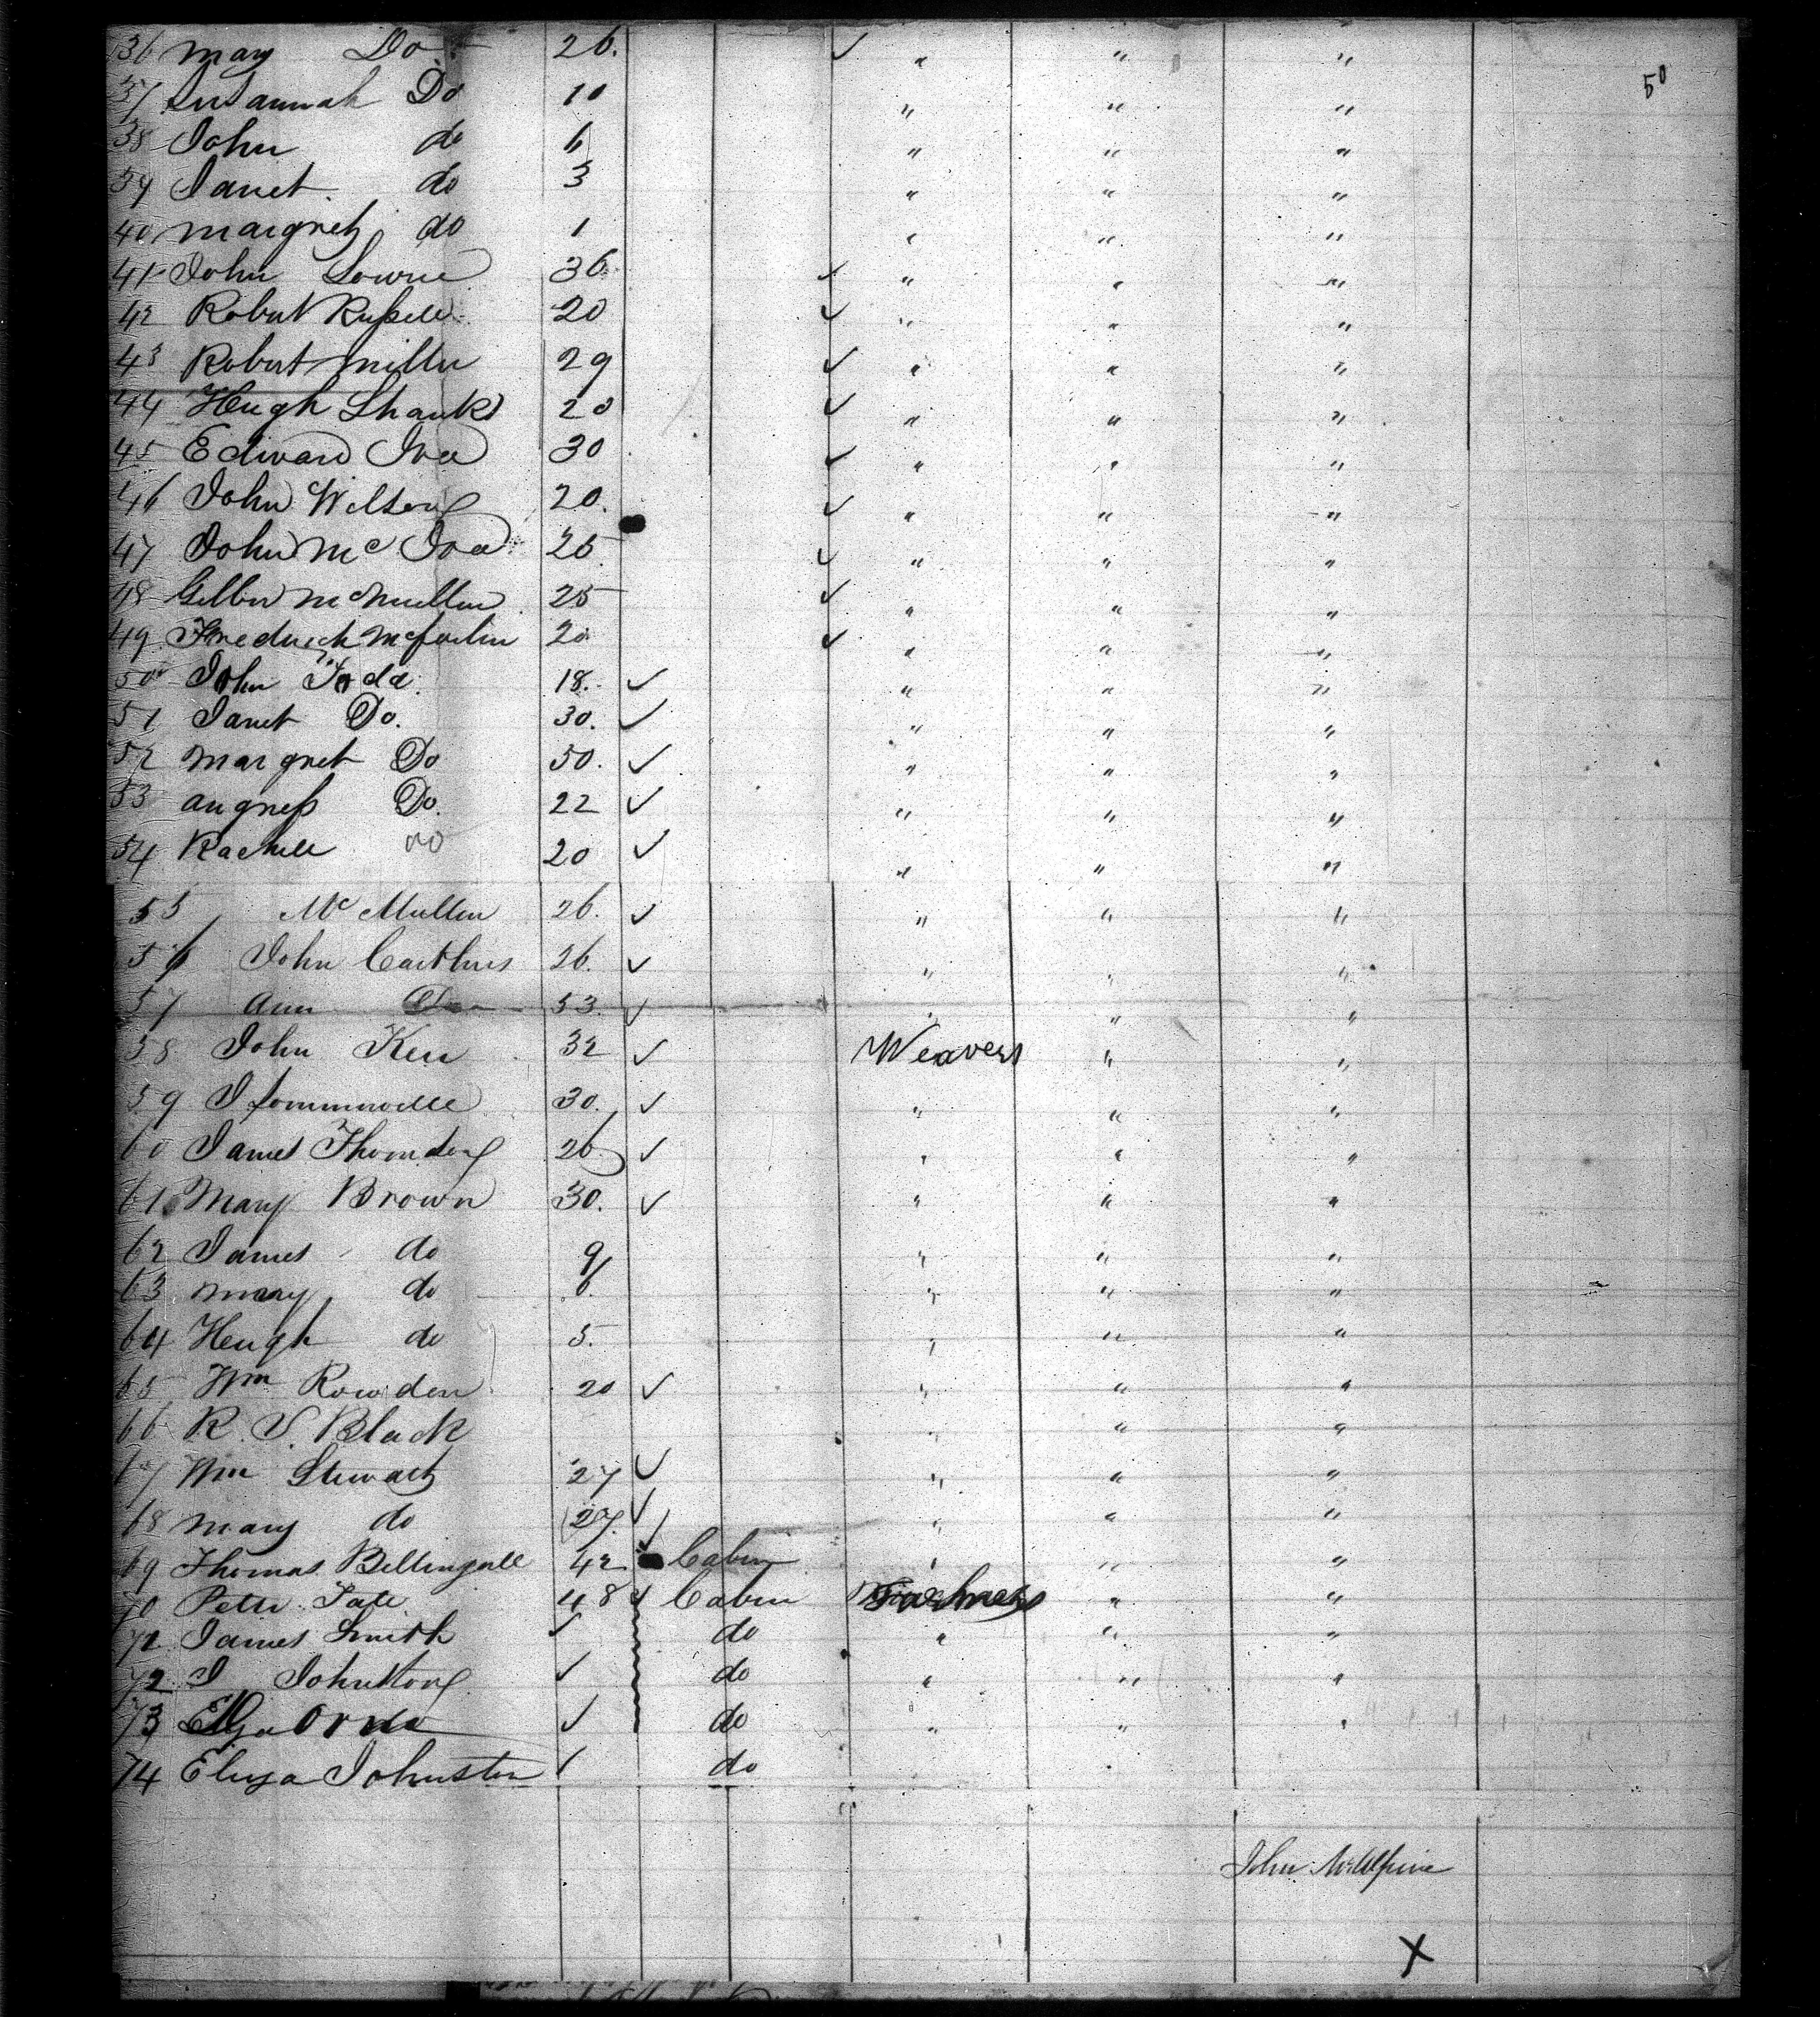 36 Mary Do 26. ✓ " " "
50
37 Susannah Do 10 " " "
38 John do 6 " " "
39 Janet do 3 " " "
40 Margret do 1 " " "
41 John Lowrie 36. ✓ " " "
42 Robert Russell 20 ✓ " " "
43 Robert Miller 29 ✓ " " "
44 Heugh Shanks 20 ✓ " " "
45 Edward 30 ✓ " " "
46 John Wilson 20. ✓ " " "
47 John Mc 25 ✓ " " "
48 McMullen 25 ✓ " " "
49 Fredrick McFarlin 20 ✓ " " "
50 John Todd 18. ✓ " " "
51 Janet Do. 30. ✓ " " "
52 Margret Do 50. ✓ " " "
53 Augness Do. 22 ✓ " " "
54 Rachell do 20 ✓ " " "
55 McMullen 26. ✓ " " "
56 John 26. ✓ " " "
57 Ann Do 53. ✓ " " "
58 John Kerr 32 ✓ Weavers " "
59 J Sommerville 30. ✓ " " "
60 James Thomson 26 ✓ " " "
61 Mary Brown 30. ✓ " " "
62 James do 9 " " "
63 Mary do 6 " " "
64 Heugh do 5. " " "
65 Wm Rowden 20 ✓ " " "
66 R. S. Black " " "
67 Wm Stewart 27 ✓ " " "
68 Mary do 27. ✓ " " "
69 Thomas Bellingall 42 Cabin " " "
70 Peter Tate 48 ✓ Cabin " "
71 James Smith ✓ do " " "
72 J Johnstong ✓ do " " "
73 ✓ do " " "
74 Eliza Johnston ✓ do
John McAlpine
X